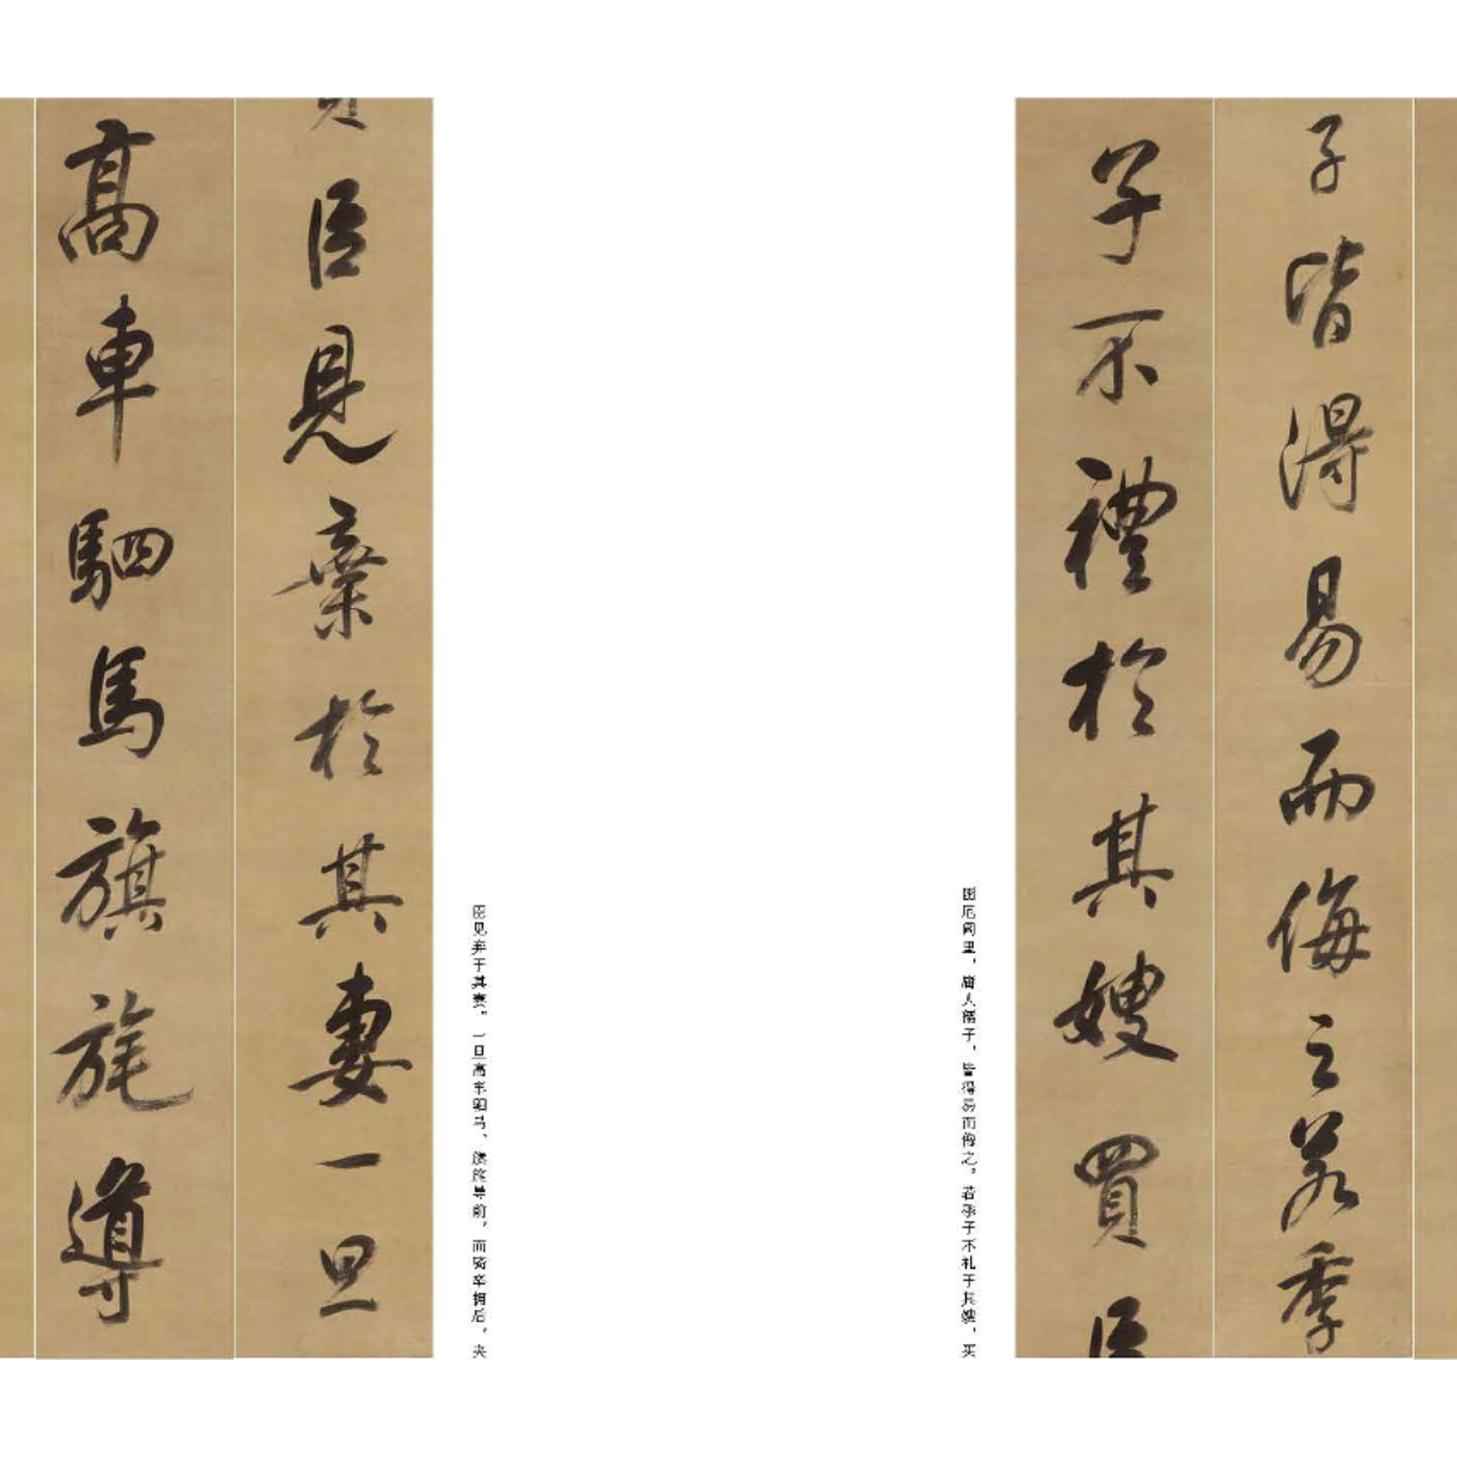 子皆得易而侮之若季
子不禮於其嫂買臣
困厄闾里，庸人孺子，皆得易而侮之。若季子不礼于其嫂，买
臣见弃于其妻。一旦高车驷马，旗旄导前，而骑卒拥后，夹
臣見棄於其妻一旦
高車駟馬旗旄導